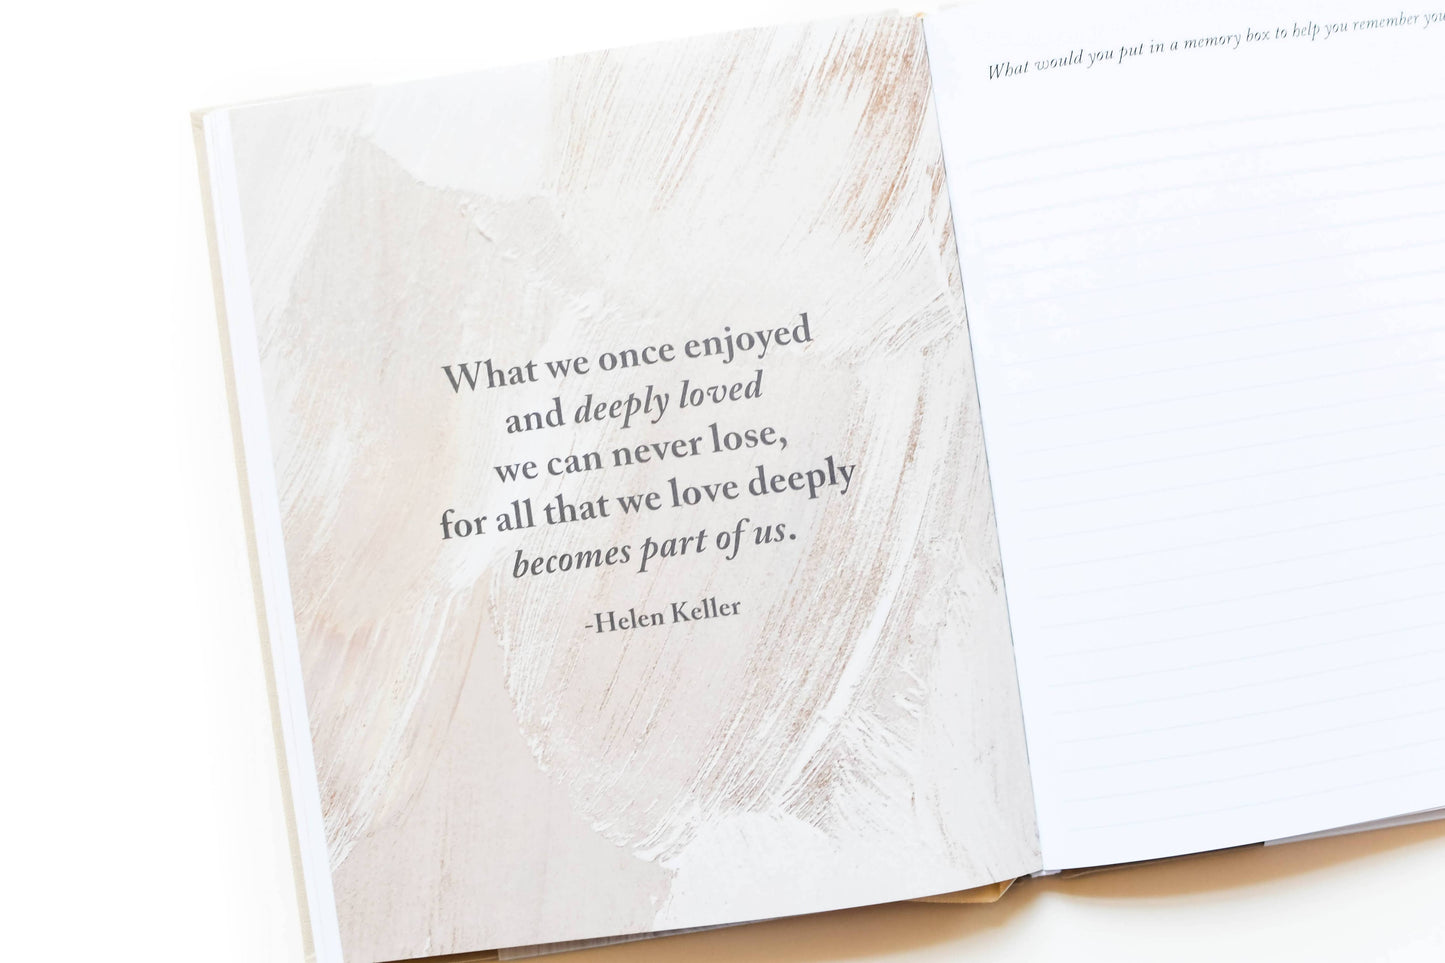 What we once enjoyed
and deeply loved
we can never lose,
for all that we love deeply
becomes part of us.
-Helen Keller
What would you put in a memory box to help you remember you